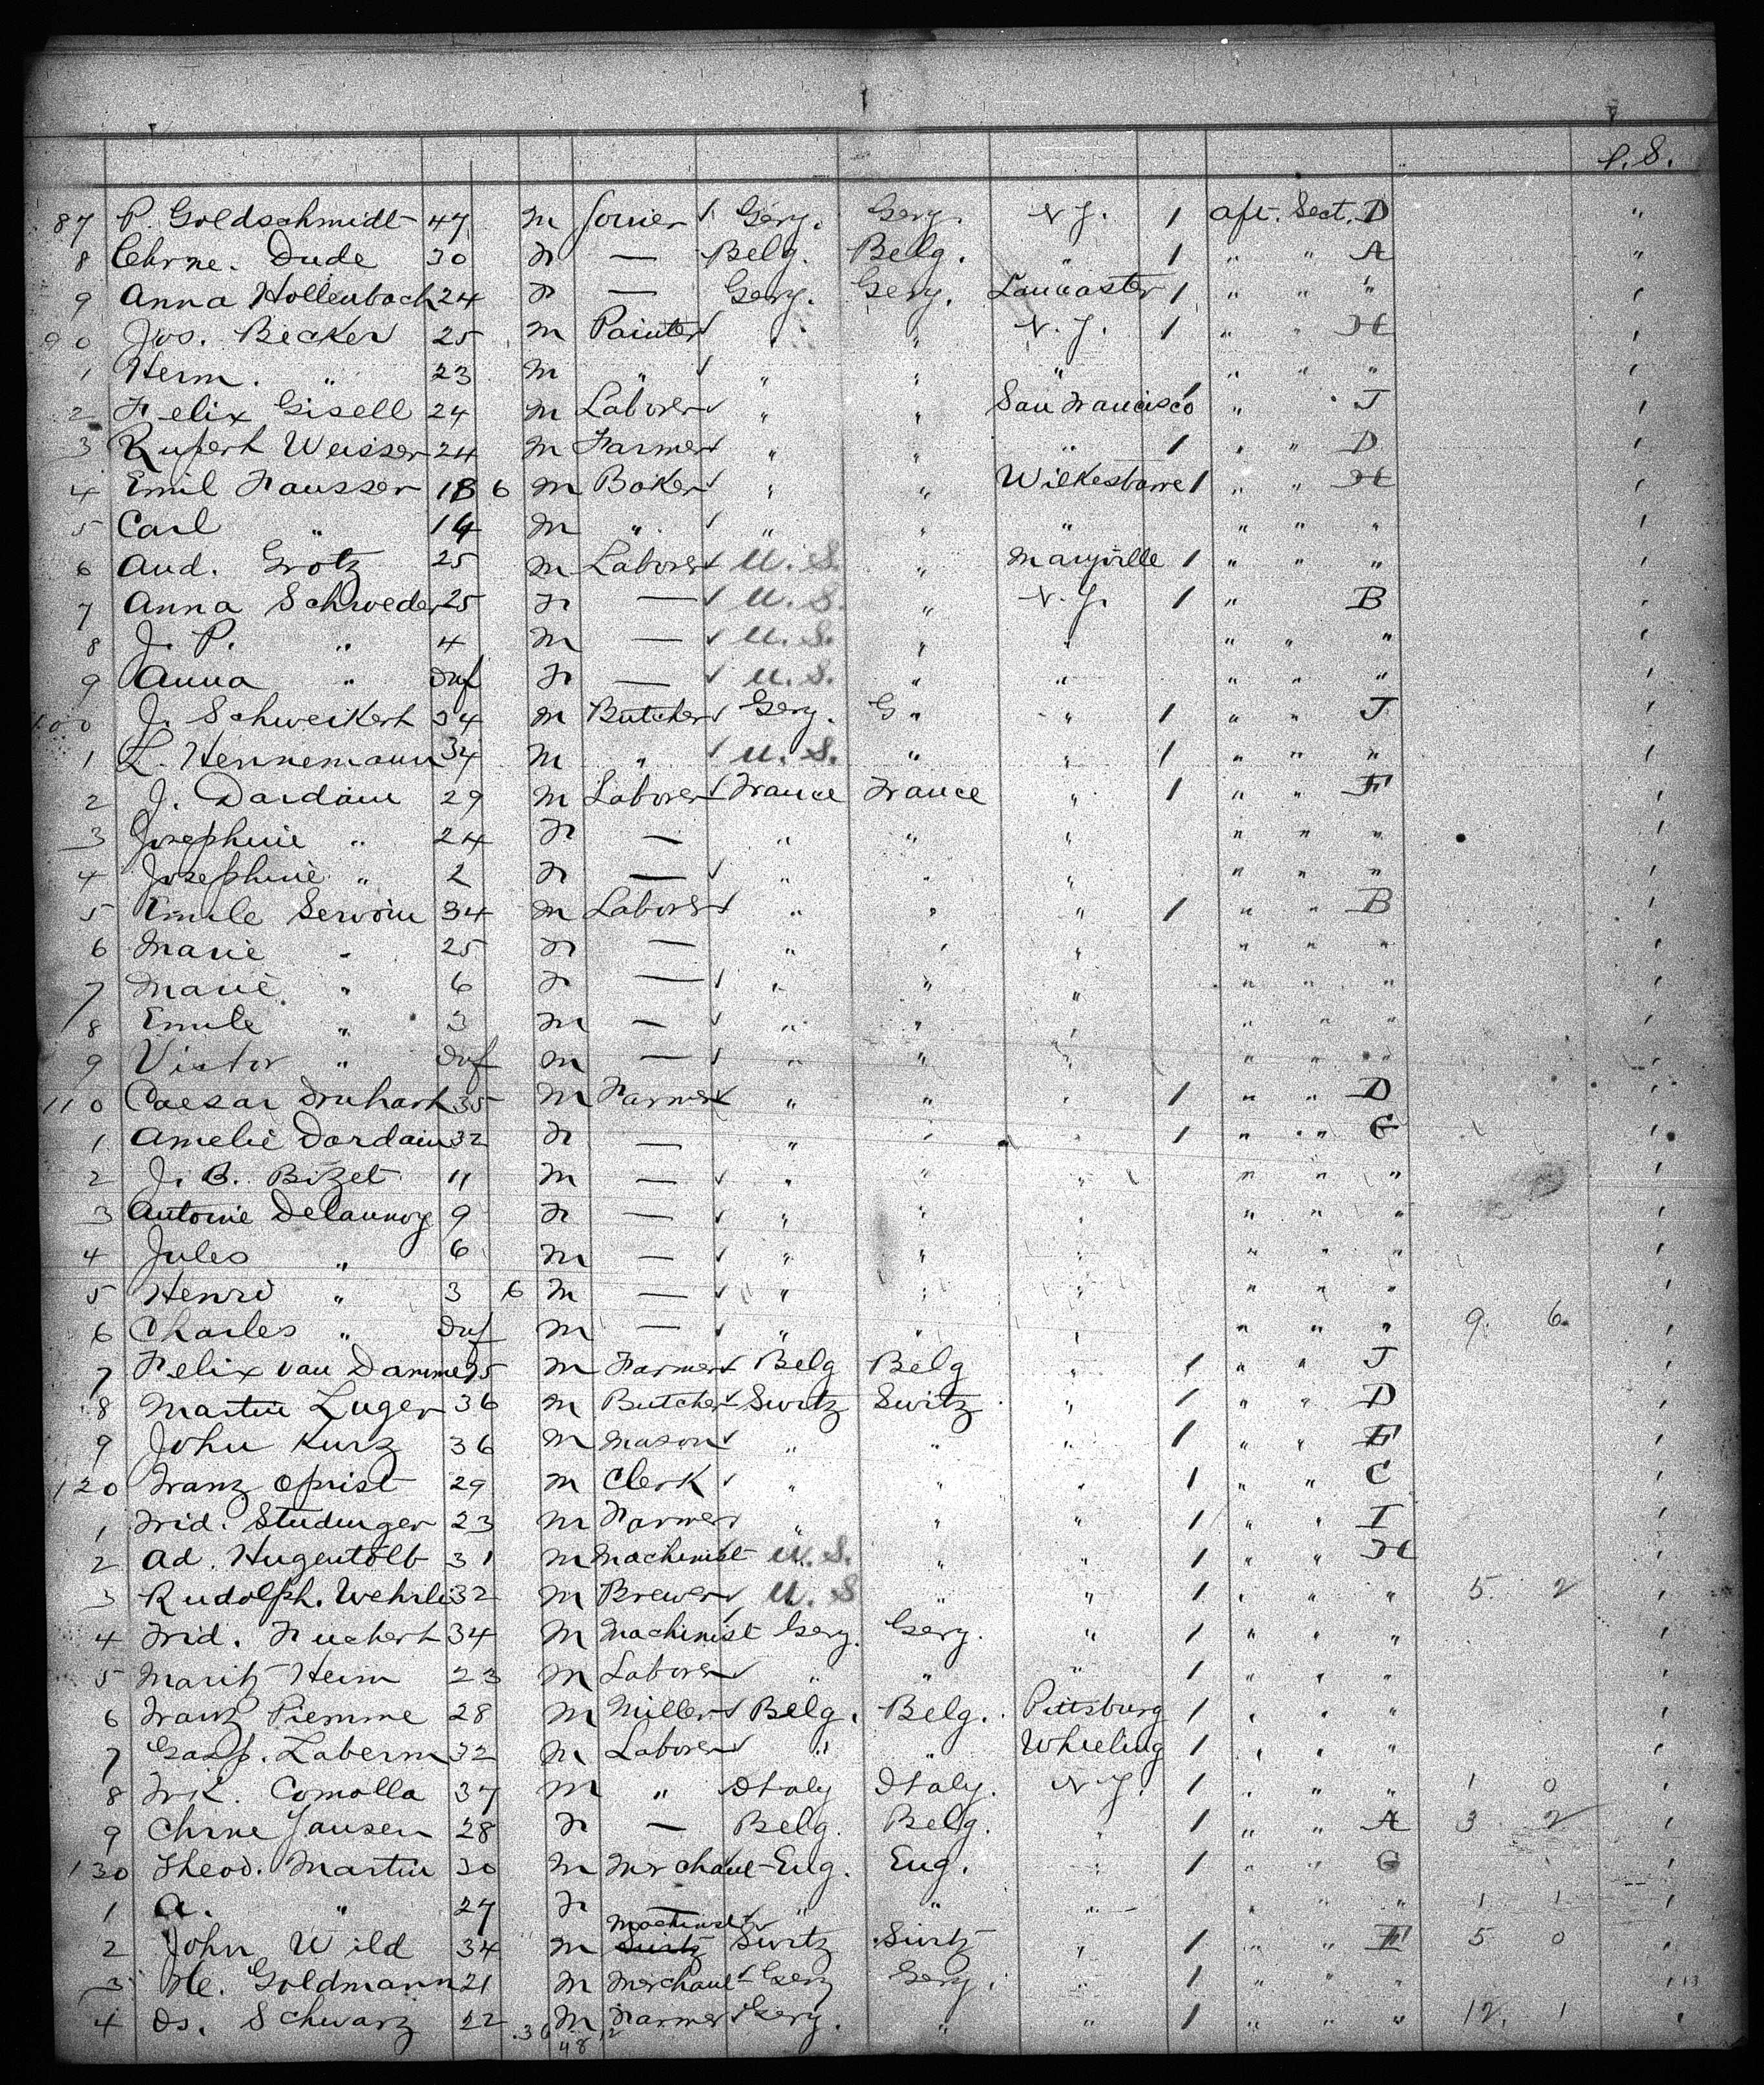 P. S.
87 P. Goldschmidt 47 m Gery. Gery. N. Y. 1 aft. Sect. D "
8 Chrne. Dude 30 F — Belg. Belg. " 1 " " A "
9 Anna Hollenbach 24 F — Gery. Gery. Lancaster 1 " " " "
90 Jos. Becker 25 m Painter " " N. Y. 1 " " H "
1 Herm. " 23 m " " " " " " " "
2 Felix Gisell 24 m Laborer " " San Francisco 1 " " J "
3 Rupert Weisser 24 m Farmer " " " 1 " " D "
4 Emil Fausser 18 6 m Baker " " Wilkesbarre 1 " " H "
5 Carl " 14 m " " " " " " " "
6 Aud. Grotz 25 m Laborer U. S. " Maryville 1 " " " "
7 Anna Schweder 25 F — U. S. " N. Y. 1 " B "
8 J. P. " 4 m — U. S. " " " " " "
9 Anna " Inf F — U. S. " " " " " "
100 J. Schweikert 34 m Butcher Gery. G " " 1 " " J "
1 L. Hennemann 34 m " U. S. " " 1 " " " "
2 J. Dardain 29 m Laborer France France " 1 " " F "
3 Josephine " 24 F — " " " " " " "
4 Josephine " 2 F — " " " " " " "
5 Emile Servoin 34 m Laborer " " " 1 " " B "
6 Marie " 25 F — " " " " " " "
7 Marie " 6 F — " " " " " " "
8 Emile " 3 m — " " " " " " "
9 Victor " Inf m — " " " " " " "
110 Caesar Druhart 35 m Farmer " " " 1 " " D "
1 Amelie Dardain 32 F — " " " 1 " " G "
2 J. B. Bizet 11 m — " " " " " " "
3 Antoine Delaunoy 9 F — " " " " " " "
4 Jules " 6 m — " " " " " " "
5 Henri " 3 6 m — " " " " " " "
6 Charles " Inf m — " " " " " " 9. 6. "
7 Felix van Damme 25 m Farmer Belg Belg " 1 " " J "
8 Martin Luger 36 m Butcher Switz Switz " 1 " " D "
9 John Kurz 36 m Mason " " " 1 " " F "
120 Franz Oprist 29 m Clerk " " " 1 " " C "
1 Frid. Studinger 23 m Farmer " " " 1 " " I "
2 Ad. Hugentolb 31 m Machinist U. S. " " 1 " " H "
3 Rudolph. Wehrli 32 m Brewer U. S " " 1 " " " 5. 2 "
4 Frid. Fuchert 34 m Machinist Gery. Gery. " 1 " " " "
5 Moritz Heim 23 m Laborer " " " 1 " " " "
6 Frank Piemme 28 m Miller Belg. Belg. Pittsburg 1 " " " "
7 Gasp. Laberm 32 m Laborer " " Wheeling 1 " " " "
8 Frk. Comolla 37 m " Italy Italy. N Y. 1 " " " 1 0 "
9 Chrne Jansen 28 F — Belg. Belg. " 1 " " A 3 2 "
130 Theod. Martin 30 m Merchant Eng. Eng. " 1 " " G "
1 A. " 27 F — " " " " " " 1 1 "
Machinist
2 John Wild 34 m Switz Switz Switz " 1 " " F 5 0 "
3 He. Goldmann 21 m Merchant Gery Gery. " 1 " " " " 13
4 Is. Schwarz 22 m Farmer Gery. " " 1 " " " 12. 1 "
36 12
48